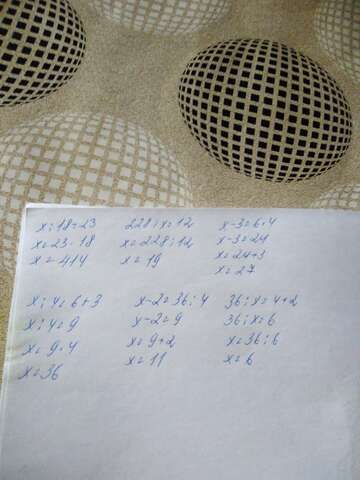 x : 18 = 23
x = 23 · 18
x = 414
228 : x = 12
x = 228 : 12
x = 19
x - 3 = 6 · 4
x - 3 = 24
x = 24 + 3
x = 27
x : 4 = 6 + 3
x : 4 = 9
x = 9 · 4
x = 36
x - 2 = 36 : 4
x - 2 = 9
x = 9 + 2
x = 11
36 : x = 4 + 2
36 : x = 6
x = 36 : 6
x = 6